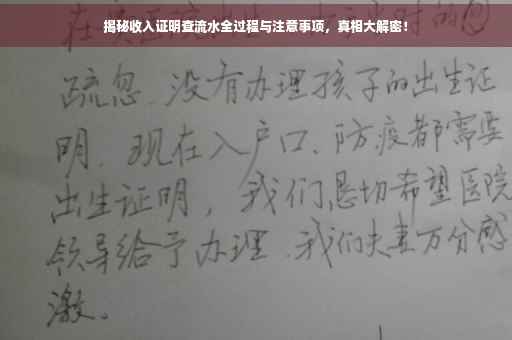 揭秘收入证明查流水全过程与注意事项，真相大解密！
疏忽、没有办理孩子的出生证
明、现在入户口、防疫都需要
出生证明，我们恳切希望医院
领导给予办理、我们夫妻万分感
激。